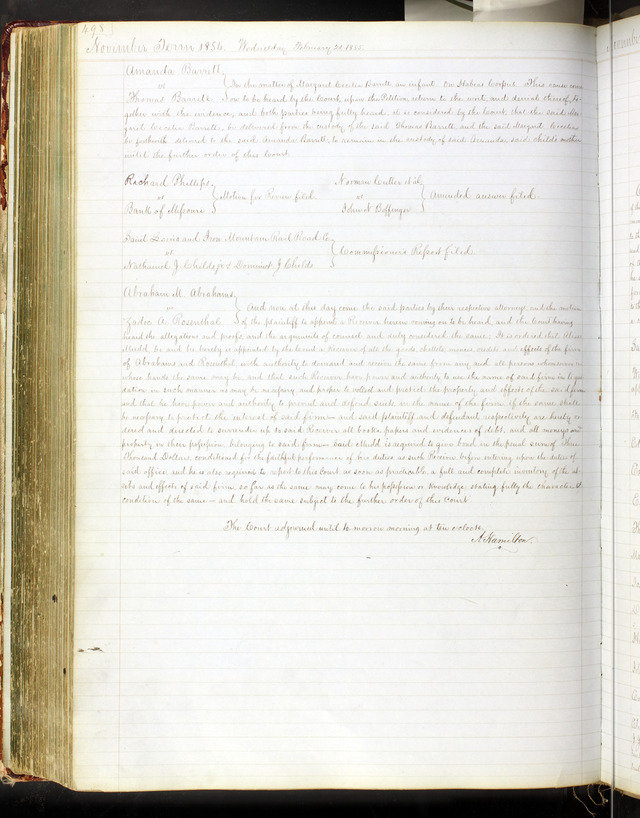 498
November Term 1854. Wednesday February 21 1855
Amanda Barrett
vs In the matter of Margaret Cecelia Barrett an infant. On Habeas Corpus. This cause came
Thomas Barrett now to be heard by the Court upon the Petition, return to the writ, and denial thereof, to-
gether with the evidence, and both parties being fully heard it is considered by the Court, that the said Mar-
garet Cecelia Barrett, be delivered from the custody of the said Thomas Barrett, and the said Margaret Cecelia
be forthwith delivered to the said Amanda Barrett, to remain in the custody of said Amanda, said child's mother
until the further order of this Court.
Richard Phillips
vs Motion for Review filed
Bank of Missouri
Norman Cutler et al
vs Amended answer filed.
John N Boffinger
Saint Louis and Iron Mountain Rail Road Co
vs Commissioners Report filed
Nathaniel J. Childs jr & Dominist J Childs
Abraham M. Abrahams
vs And now at this day come the said parties by their respective attorneys and the motion
Zadoc A. Rosenthal of the plaintiff to appoint a Receiver herein coming on to be heard, and the Court having
heard the allegations and proofs and the arguments of counsel and duly considered the same. It is ordered that
Mudd, be and he hereby is appointed by the Court a Receiver of all the goods, chattels, monies credits and effects of the firm
of Abrahams and Rosenthal with authority to demand and receive the same from any and all persons whomsoever in
whose hands the same may be, and that such Receiver have power and authority to use the name of said firm in liqui-
dation in such manner as may be necessary and proper to collect and protect the property and effects of the said firm
and that he have power and authority to prevent and defend suits in the name of the firm if the same shall
be necessary to protect the interest of said firm— and said plaintiff and defendant respectively are hereby or-
dered and directed to surrender up to said Receiver all books, papers and evidences of debt, and all moneys and
property in their possession belonging to said firm— Said Mudd is required to give bond in the penal sum of Three
Thousand Dollars, conditioned for the faithful performance of his duties as such Receiver before entering upon the duties of
said office, and he is also required to report to this Court as soon as practicable a full and complete inventory of the as-
sets and effects of said firm, so far as the same may come to his possession or knowledge stating fully the character &
condition of the same— and hold the same subject to the further order of this Court
The Court adjourned until to morrow morning at ten oclock.
A Hamilton